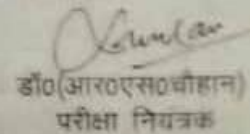 डॉ0(आर0एस0चौहान)
परीक्षा नियंत्रक